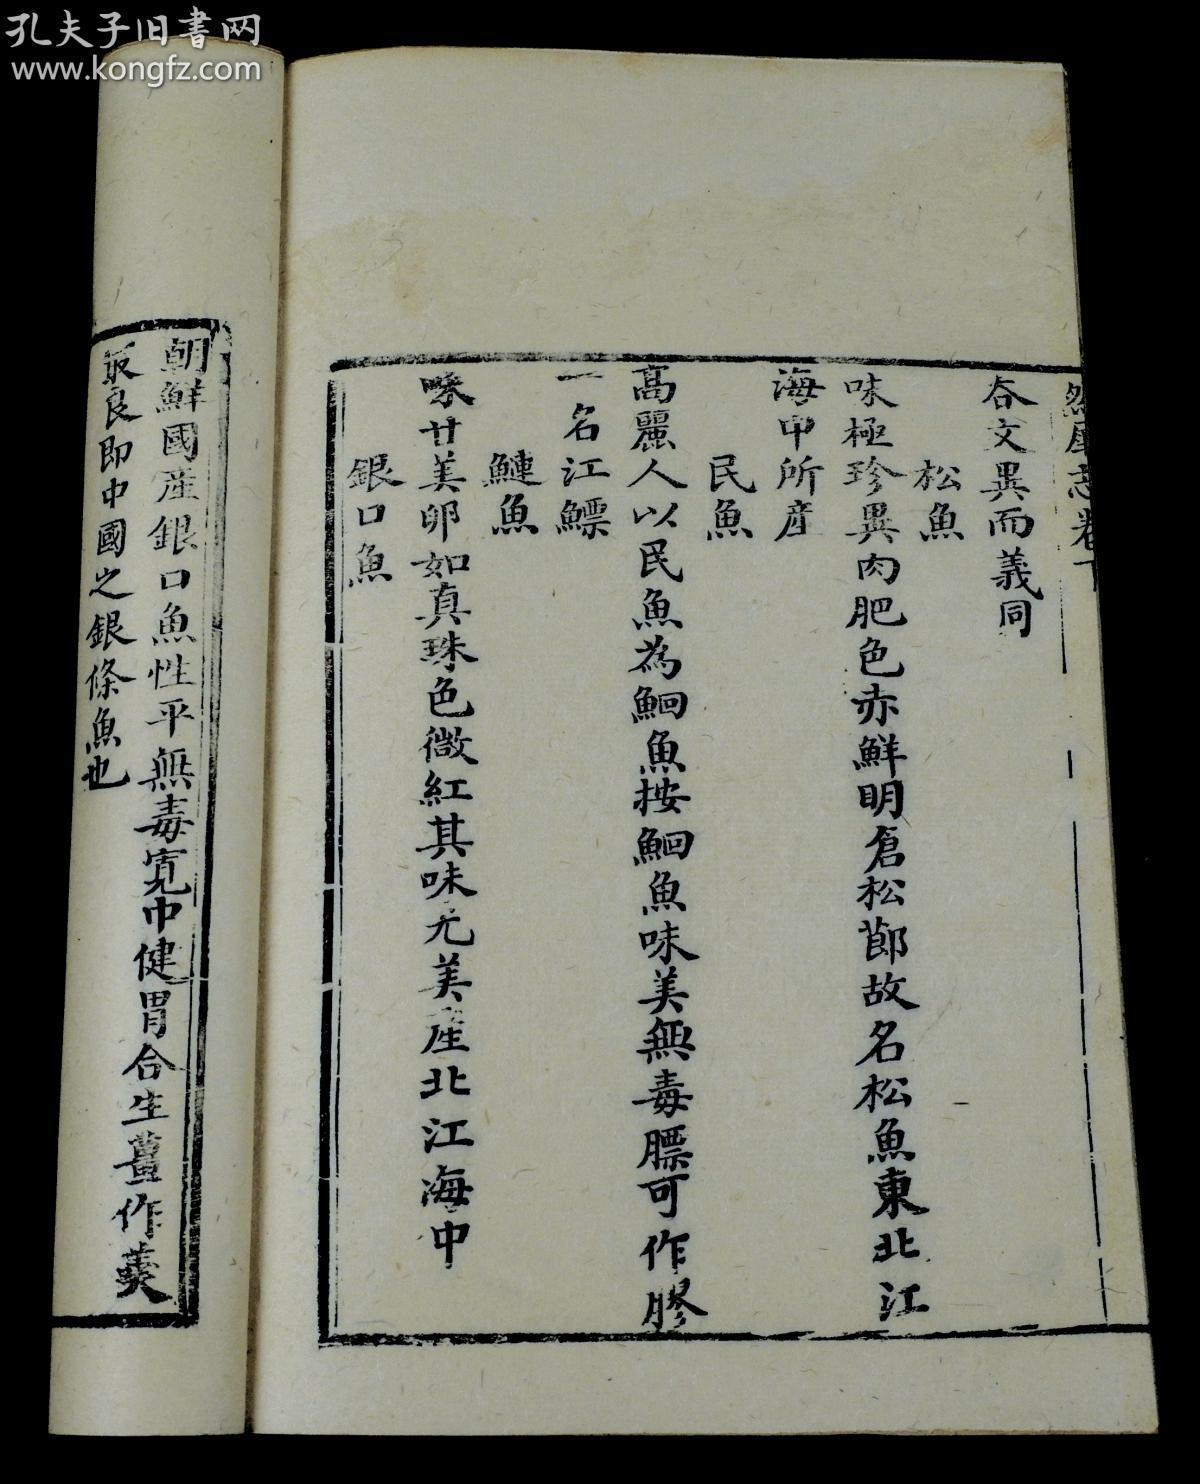 孔夫子旧書网
www.kongfz.com
卷下
夻文異而義同
松魚
味極珍異肉肥色赤鮮明食松節故名松魚東北江
海中所産
民魚
高麗人以民魚為鮰魚按鮰魚味美無毒膘可作膠
一名江鰾
鰱魚
味甘美卵如真珠色微紅其味尤美産北江海中
銀口魚
朝鮮國産銀口魚性平無毒寛中健胃合生薑作羹
最良即中國之銀條魚也